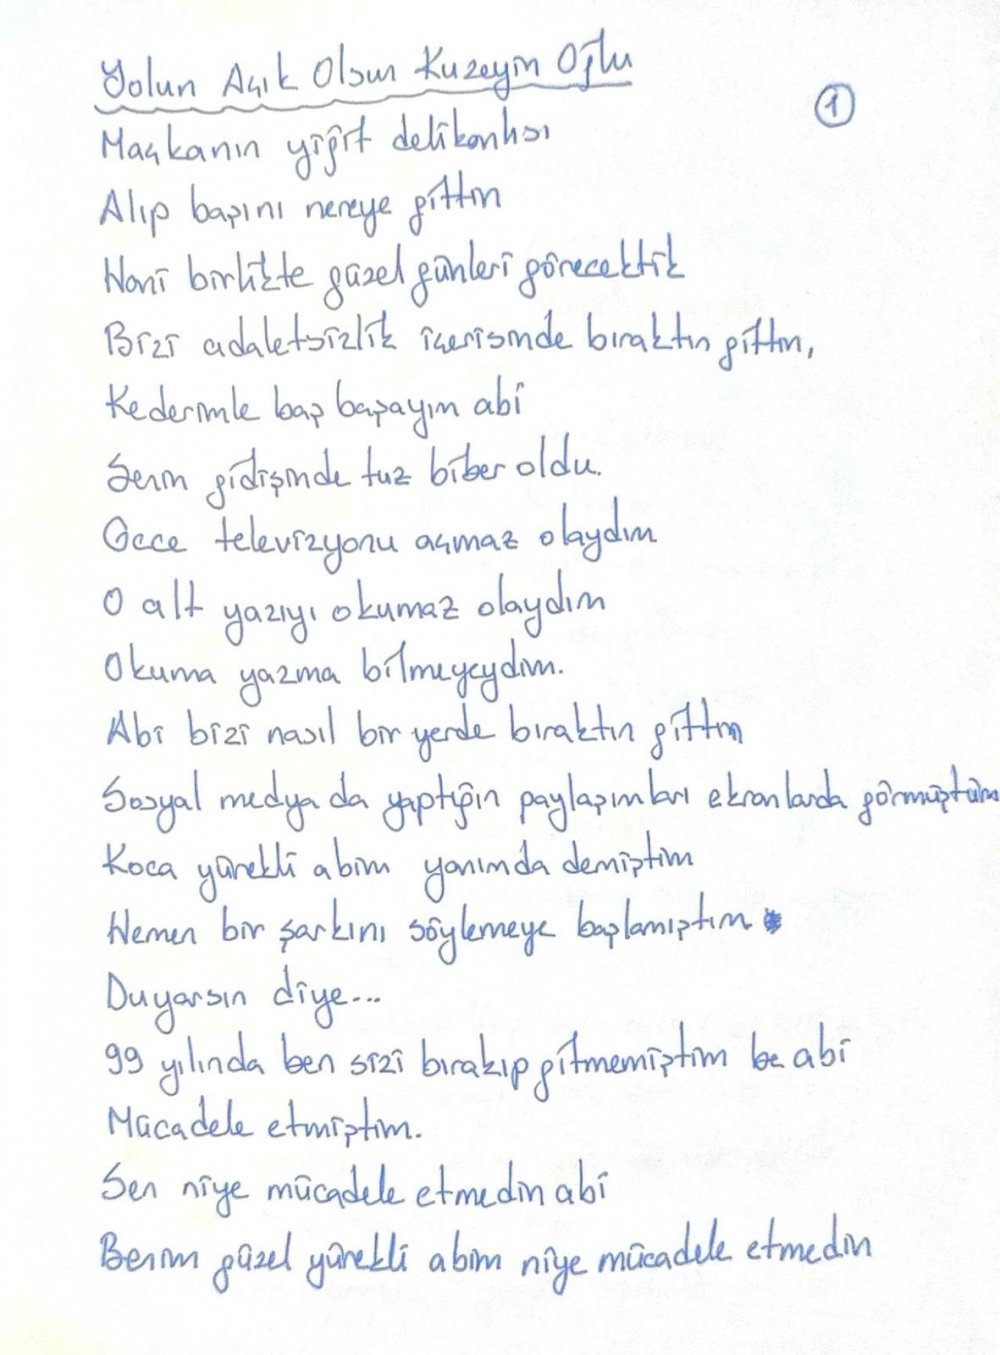 Yolun Açık Olsun Kuzeyin Oğlu
1
Maçkanın yiğit delikanlısı
Alıp başını nereye gittin
Hani birlikte güzel günleri görecektik
Bizi adaletsizlik içerisinde bıraktın gittin,
Kederimle baş başayım abi
Senin gidişinde tuz biber oldu.
Gece televizyonu açmaz olaydım
O alt yazıyı okumaz olaydım
Okuma yazma bilmeyeydim.
Abi bizi nasıl bir yerde bıraktın gittin
Sosyal medya da yaptığın paylaşımları ekranlarda görmüştüm
Koca yürekli abim yanımda demiştim
Hemen bir şarkını söylemeye başlamıştım
Duyarsın diye...
99 yılında ben sizi bırakıp gitmemiştim be abi
Mücadele etmiştim.
Sen niye mücadele etmedin abi
Benim güzel yürekli abim niye mücadele etmedin